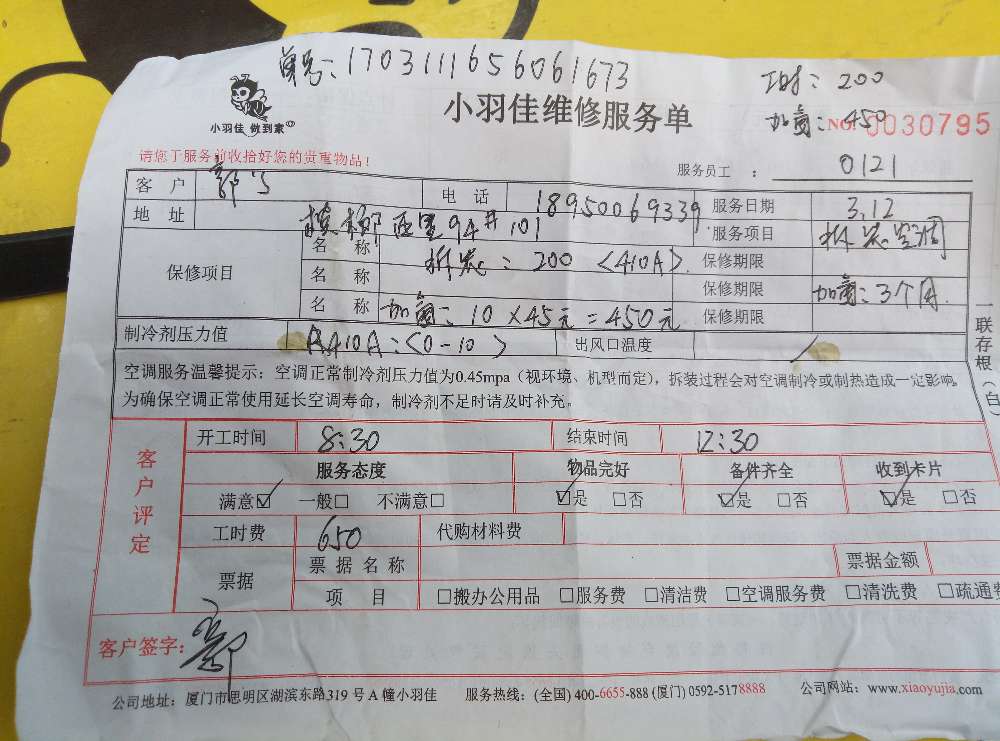 单号:1703111656061673
小羽佳 做到家
小羽佳维修服务单
工时:200
加氟:450
NO: 0030795
请您于服务前收拾好您的贵重物品!
服务员工 : 0121
客 户 电 话 18950069339 服务日期 3.12
地 址 西里94# 101 服务项目 拆装空调
保修项目 名 称 拆装:200〈410A〉 保修期限
名 称 保修期限 加氟:3个月.
名 称 加氟:10×45元=450元 保修期限
制冷剂压力值 R410A:〈0-10〉 出风口温度 /
空调服务温馨提示:空调正常制冷剂压力值为0.45mpa(视环境、机型而定),拆装过程会对空调制冷或制热造成一定影响。
为确保空调正常使用延长空调寿命,制冷剂不足时请及时补充。
一联存根(白
客户评定
开工时间 8:30 结束时间 12:30
服务态度 物品完好 备件齐全 收到卡片
满意☑ 一般□ 不满意□ ☑是 □否 ☑是 □否 ☑是 □否
工时费 650 代购材料费
票据 票据名称 票据金额
项 目 □搬办公用品 □服务费 □清洁费 □空调服务费 □清洗费 □疏通费
客户签字:
公司地址:厦门市思明区湖滨东路319号A幢小羽佳 服务热线:(全国) 400-6655-888 (厦门) 0592-5178888 公司网站:www.xiaoyujia.com